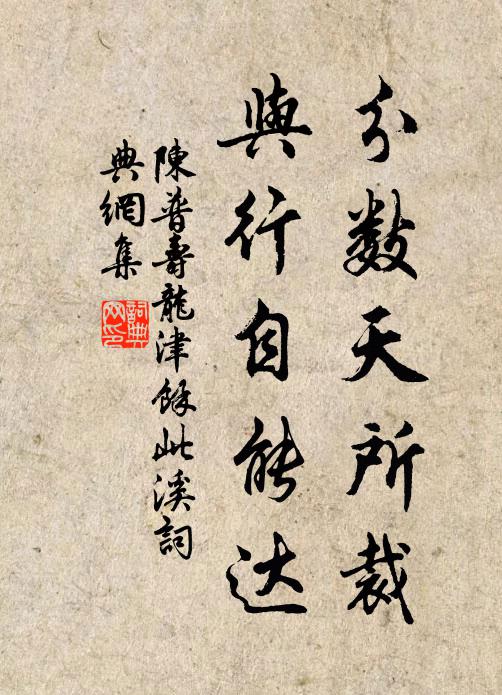 分數天所裁
與行自能达
陳普壽龍津餘此溪詞
典網集
詞典
网印